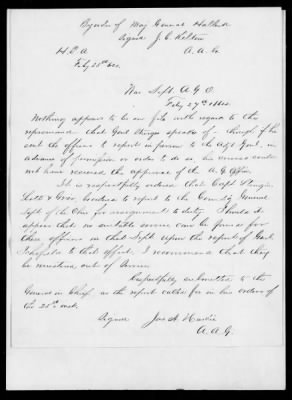 By order of Maj General Halleck
Signed J. C. Kelton
H. Q. A. A. A. G.
Feby 25th
War Dept. A. G. O.
Feby 27th
Nothing appears to be on file with regard to the
reprimand that Genl speaks of, though if he
sent the officers to report in person to the Adjt Genl. in
advance of permission or order to do so, his course could
not have received the approval of the A. G. Office
It is respectfully ordered that Capt
Scott & ordered to report to the Comdg General
Dept of the Ohio for assignment to duty. Should it
appear that no suitable service can be found for
these officers in that Dept upon the report of Genl
Schofield to that effect, I recommend that they
be mustered out of service
Respectfully submitted to the
General in Chief, as the report called for in his orders of
the 25th
Signed Jas A. Hardie
A. A. G.